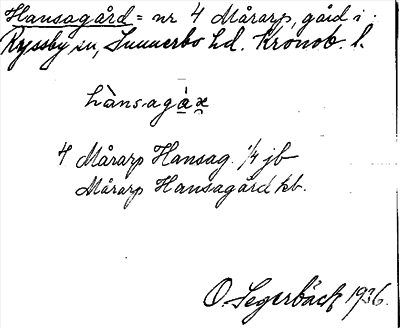 Hansagård = nr 4 Mårarp, gård i
Ryssby sn, Sunnerbo hd. Kronob. l.
hànsagáx
4 Mårarp Hansag. 1/4 jb
Mårarp Hansagård kb.
O. Segerbäck 1936.